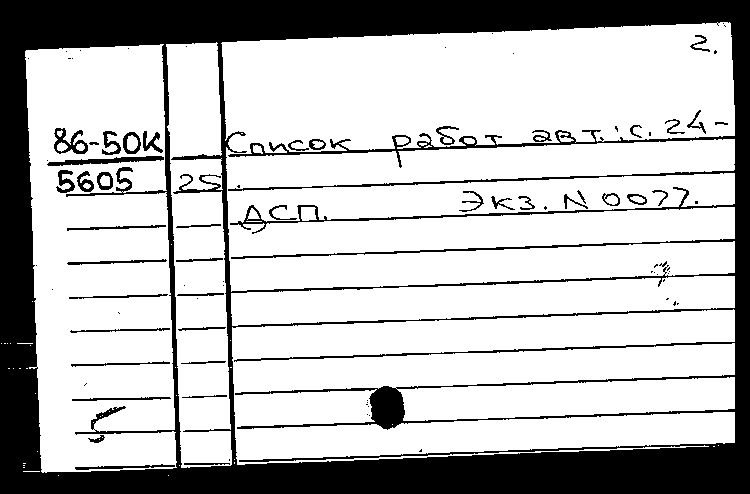 2.
86-50К Список работ авт.: с. 24-
5605 25.
ДСП. Экз. N 0077.